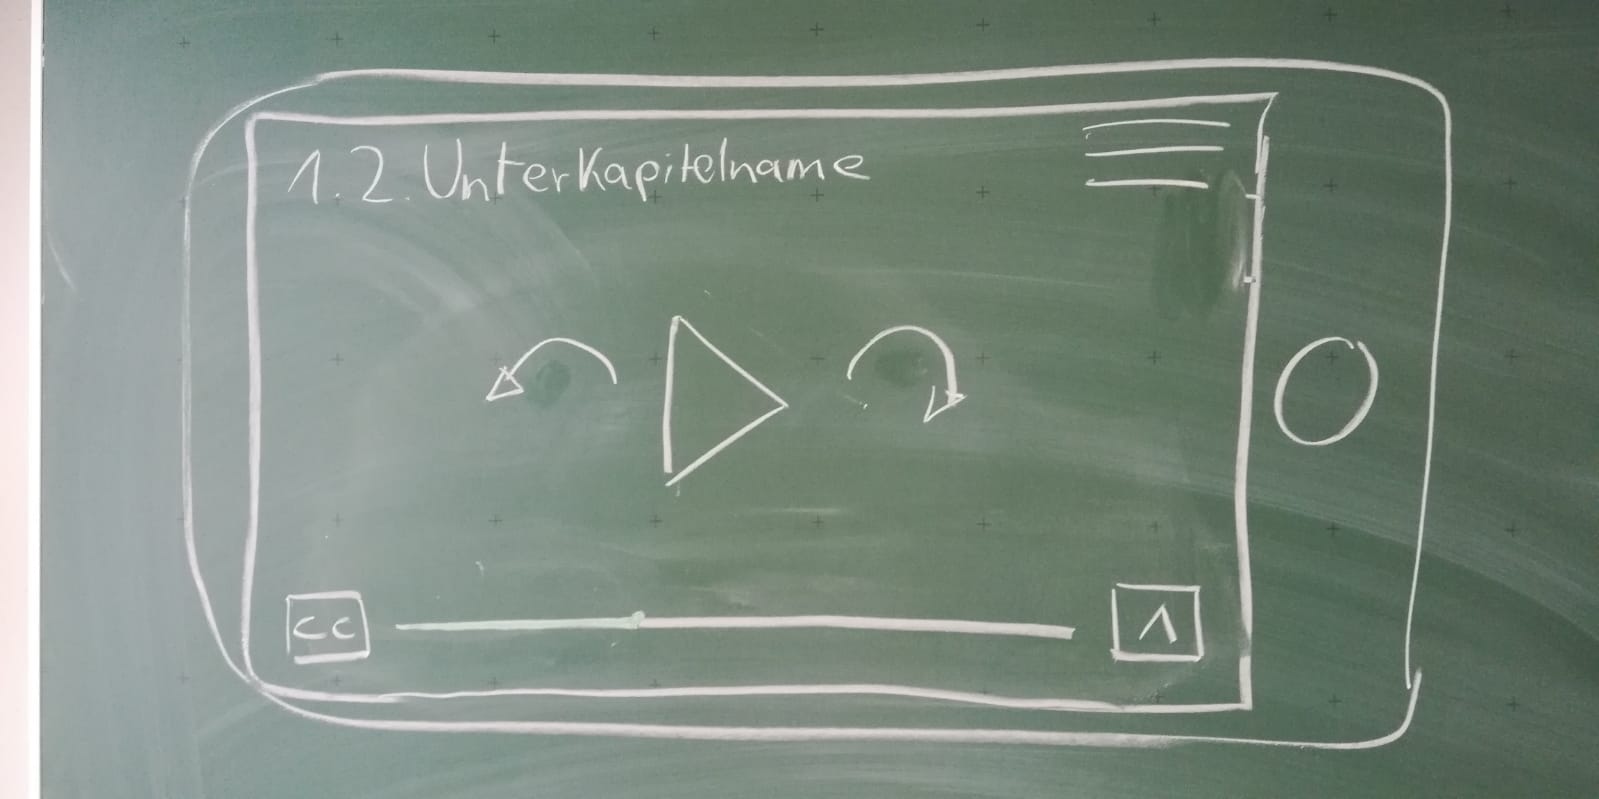 1.2. Unterkapitelname
CC